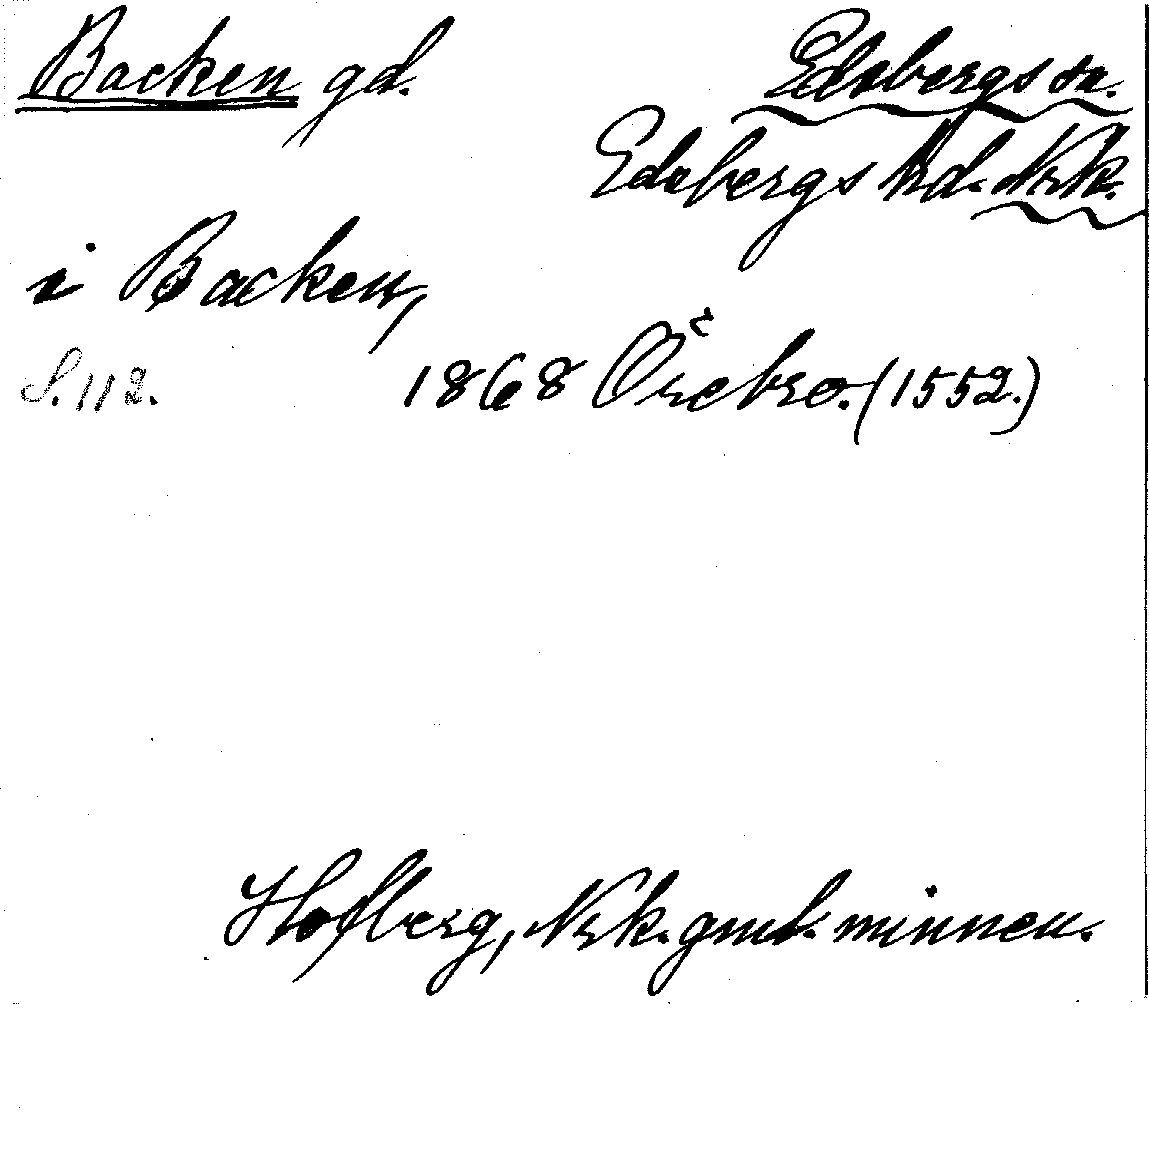 Backen gd. Edsbergs sn.
Edsbergs hd. Nrk.
i Backen,
S. 112. 1868 Örebro. (1552.)
Hofberg, Nrk. gml. minnen.